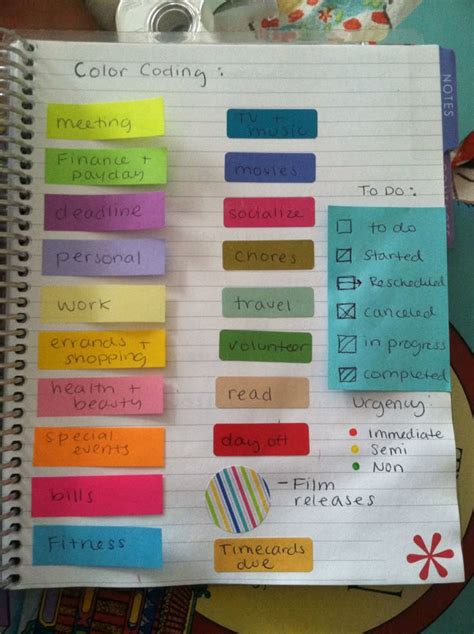 Color Coding:
NOTES
meeting
Finance +
payday
deadline
personal
work
errands +
shopping
health +
beauty
special
events
bills
Fitness
TV +
music
movies
socialize
chores
travel
volunteer
read
day off
- Film
releases
Timecards
due
To Do:
to do
Started
Rescheduled
canceled
in progress
completed
Urgency:
Immediate
Semi
Non